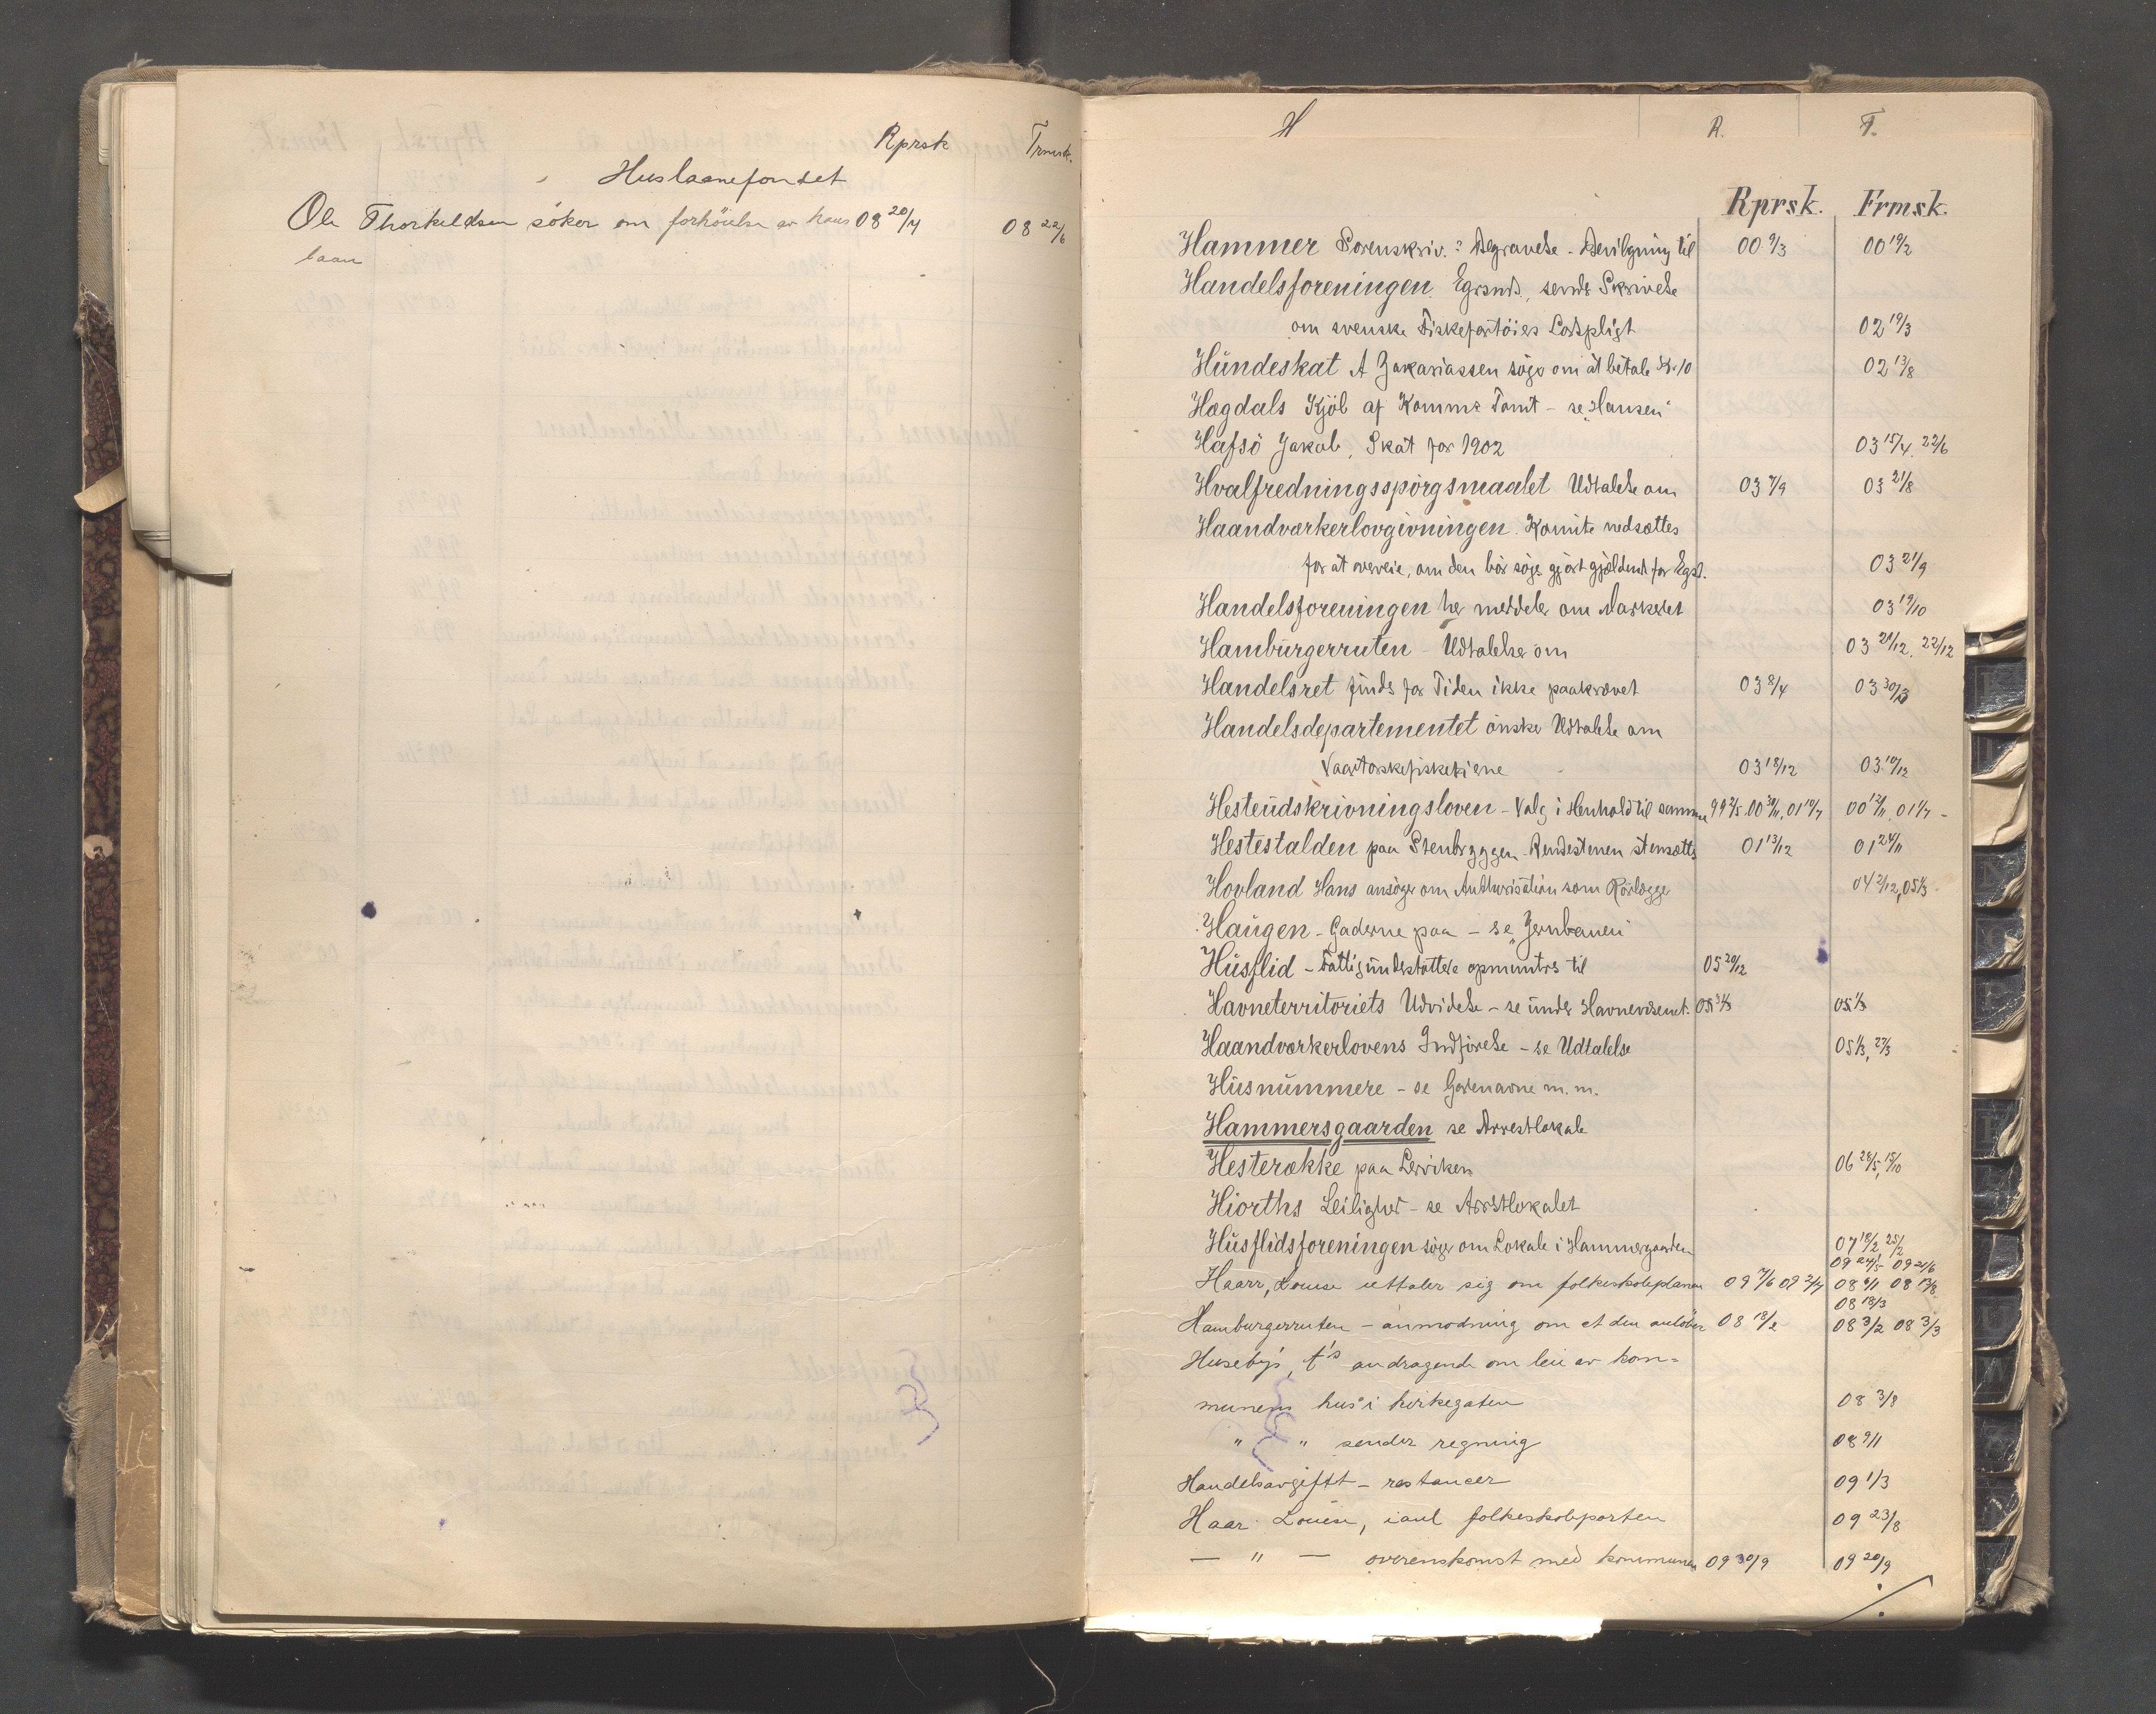 Rprsk Frmsk.
Huslaanefondet
Ole Thorkeldsen söker om forhöielse av huus 08 20/4 08 22/6
laan
H R. F.
Rprsk. Frmsk.
Hammer Sorenskriv.: Begravelse - Bevilgning til 00 9/3 00 19/2
Handelsforeningen Egrsnds. sender Skrivelse
om svenske Fiskefartöiers Lodspligt 02 19/3
Hundeskat A Zakariassen söger om at betale Kr. 10 02 13/8
Hægdals Kjöb af Komms Tomt - se "Hansen"
Hafsö Jakob, Skat for 1902 03 15/4. 22/6
Hvalfredningsspörgsmaalet Udtalelse om 03 7/9 03 21/8
Haandværkerlovgivningen. Komite nedsættes
for at overveie, om den bör söges gjort gjældende for Egsd. 03 21/9
Handelsforeningen her meddeler om Markedet 03 19/10
Hamburgerruten - Udtalelse om 03 21/12. 22/12
Handelsret findes for Tiden ikke paakrævet 03 8/4 03 30/3
Handelsdepartementet önsker Udtalelse om
Vaartorskefiskerierne 03 18/12 03 10/12
Hesteudskrivningsloven - Valg i Henhold til samme 99 2/5. 00 30/11, 01 18/7 00 12/11, 01 1/7 -
Hestestalden paa Stenbryggen - Rendestenen stensættes 01 13/12 01 24/11
Hovland Hans ansöger om Authorisation som Rörlægger 04 2/12, 05 1/3
Haugen - Gaderne paa - se "Jernbanen"
Husflid - Fattigunderstöttede opmuntres til 05 20/12
Havneterritoriets Udvidelse - se under Havnevæsenet. 05 31/3 05 1/3
Haandværkerlovens Indförelse - se Udtalelse 05 1/3, 27/3
Husnummere - se Gadenavne m. m.
Hammersgaarden se Arrestlokale
Hesterække paa Lerviken 06 28/5, 15/10
Hiorths Leilighed - se Arrestlokalet
Husflidsforeningen söger om Lokale i Hammersgaarden 07 18/2 25/2
09 24/5 09 21/6
Haarr, Louise uttaler sig om folkeskoleplanen 09 7/6 09 2/7 08 9/11 08 13/8
08 18/3
Hamburgerruten - anmodning om at den anlöber 08 18/2 08 3/2 08 3/3
Huseby's, f's andragende om leie av kom=
munens hus i kirkegaten 08 3/8
" " sender regning 08 9/11
Handelsavgift - restancer 09 1/3
Haar Louise, i anl folkeskoleporten 09 23/8
- " - overenskomst med kommunen 09 30/9 09 20/9